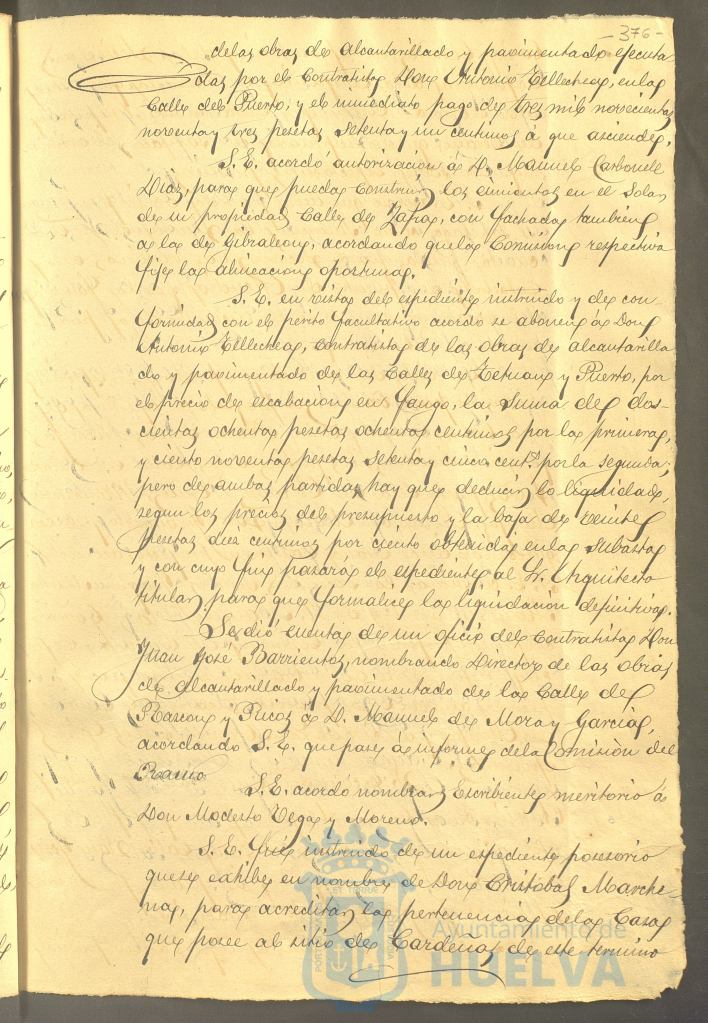 - 376 -
delas obras de alcantarillado y pavimentado ejecuta
das por el Contratista Don Antonio Tellechea, en la
Calle del Puerto, y el inmediato pago de tres mil novecientas
noventa y tres pesetas setenta y un centimos á que asciende.
S. E. acordó autorizacion á D. Manuel Carbonell
Diaz, para que pueda construir los cimientos en el Solar
de su propiedad Calle de Zafra, con fachada tambien
á la de Gibraleon, acordando que la Comision respectiva
fije la alineacion oportuna.
S. E. en vista del espediente instruido y de con-
formidad con el perito facultativo acordó se abone á Don
Antonio Tellechea, Contratista de las obras de alcantarilla
do y pavimentado de las Calles de Tetuan y Puerto, por
el precio de escabacion en fango, la suma de dos-
cientas ochenta pesetas ochenta centimos por la primera,
y ciento noventa pesetas setenta y cinco cents. por la segunda;
pero de ambas partidas hay que deducir lo liquidado,
segun los precios del presupuesto y la baja de veinte
pesetas diez centimos por ciento obtenida en la subasta
y con cuyo fin pasará el espediente al Sr. Arquitecto
titular para que formalice la liquidacion definitiva.
Se dió cuenta de un oficio del Contratista Don
Juan José Barrientos, nombrando Director de las obras
de alcantarillado y pavimentado de la Calle del
Rascon y Puicos á D. Manuel de Mora y Garcia,
acordando S. E. que pase á informe de la Comisión del
Ramo.
S. E. acordó nombrar Escribiente meritorio á
Don Modesto Vega y Moreno.
S. E. fué instruido de un espediente posesorio
que se exhibe en nombre de Don Cristobal Marche
na, para acreditar la pertenencia de la Casa
que posee al sitio de Cardeñas de este termino
Ayuntamiento de
HUELVA